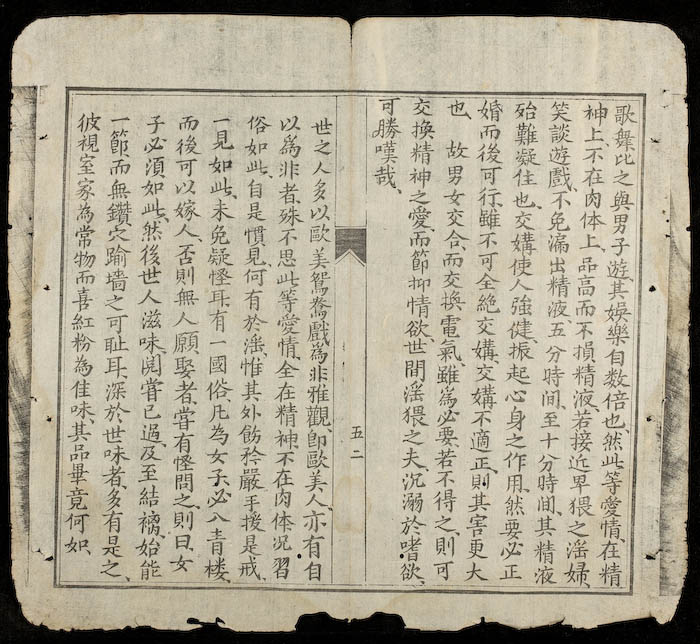 歌舞比之與男子遊、其娛樂自数倍也、然此等愛情、在精
神上、不在肉体上、品高而不損精液、若接近卑猥之淫婦、
笑談遊戲、不免漏出精液、五分時間、至十分時間、其精液
殆難凝住也、交媾使人強健、振起心身之作用、然要必正
婚而後可行、雖不可全絶交媾、交媾不適正、則其害更大
也、故男女交合、而交換電氣、雖為必要、若不得之、則可
交換精神之愛、而節抑情欲、世間淫猥之夫、沉溺於嗜欲、
可勝嘆哉、
五二
世之人多以歐美鴛鴦戲為非雅觀、即歐美人、亦有自
以為非者、殊不思此等愛情、全在精神、不在肉体、况習
俗如此、自是慣見、何有於淫、惟其外飭矜嚴、手援是戒、
一見如此、未免疑怪耳、有一國俗、凡為女子、必入青楼、
而後可以嫁人、否則無人願娶者、嘗有怪問之、則曰、女
子必須如此、然後世人滋味、閲嘗已過、及至結褵、始能
一節而無鑽穴踰墻之可恥耳、深於世味者、多有是之、
彼視室家為常物、而喜紅粉為佳味、其品畢竟何如、